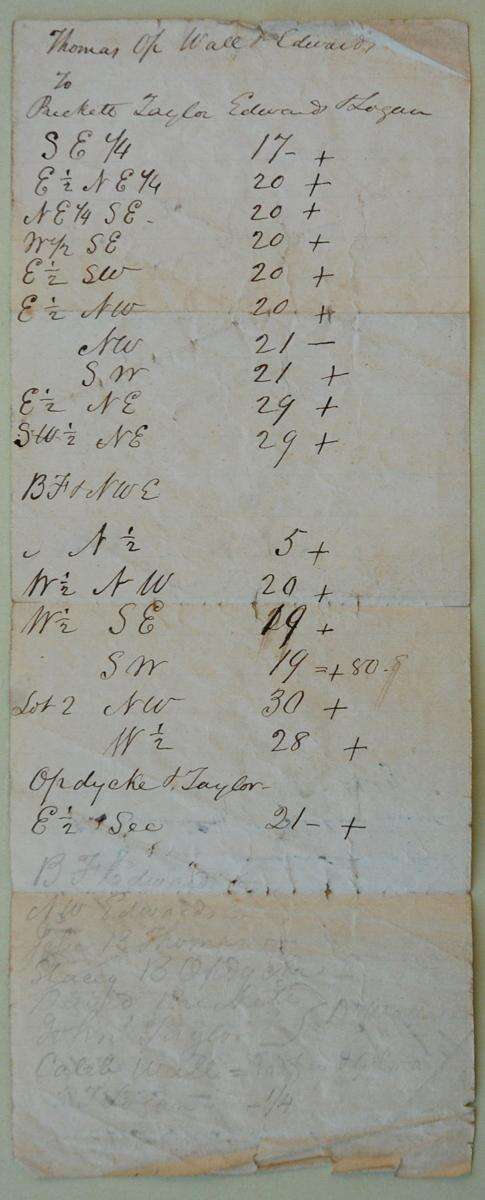 Thomas Op Wall & Edwards
To
Prickett Taylor Edwards & Logan
S E 1/4 17- +
E 1/2 N E 1/4 20 +
N E 1/4 S E - 20 +
W 1/2 SE 20 +
E 1/2 SW 20 +
E 1/2 NW 20 +
NW 21 -
S W 21 +
E 1/2 NE 29 +
SW 1/2 NE 29 +
B F & N W E
N 1/2 5 +
W 1/2 N W 20 +
W 1/2 SE 19 +
S W 19 =+ 80.
Lot 2 NW 30 +
W 1/2 28 +
Opdycke & Taylor
E 1/2 Sec 21- +
B F Edwards
N W Edwards
John B Thomas
Stacey B Opdycke
Prickett
John Taylor
Caleb Wall =
1/4